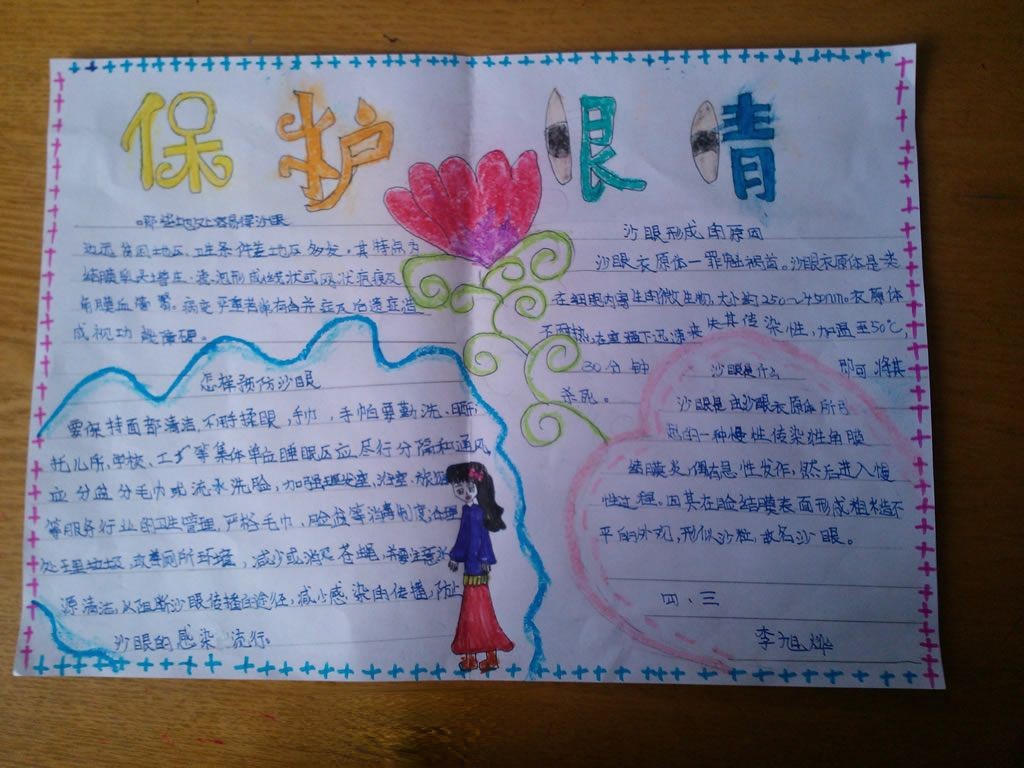 保护眼睛
哪些地区容易得沙眼
边远贫困地区、卫生条件差地区多发，其特点为
结膜乳头增生、滤泡形成线状或网状疤痕及
角膜血管翳。病变严重者常有合并症及后遗症造
成视功能障碍。
怎样预防沙眼
要保持面部清洁，不用手揉眼，手巾，手帕要勤洗、晒
托儿所、学校、工厂等集体单位睡眠区应尽行分隔和通风
应分盆分毛巾或流水洗脸，加强理发室、浴室、旅
等服务行业的卫生管理，严格毛巾、脸盆等消毒制度，合理
处理垃圾，改善厕所环境，减少或消灭苍蝇，并注意水
源清洁，从阻断沙眼传播的途径，减少感染的传播，防止
沙眼的感染 流行。
沙眼形成的原因
沙眼衣原体—罪魁祸首。沙眼衣原体是类
在细胞内寄生的微生物，大小约250～450nm。衣原体
不耐热，在室温下迅速丧失其传染性，加温至50℃，
30分钟 即可将其
杀死。
沙眼是什么
沙眼是由沙眼衣原体所引
起的一种慢性传染性角膜
结膜炎，偶有急性发作，然后进入慢
性过程。因其在睑结膜表面形成粗糙不
平的外观，形似沙粒，故名沙眼。
四、三
李旭烨